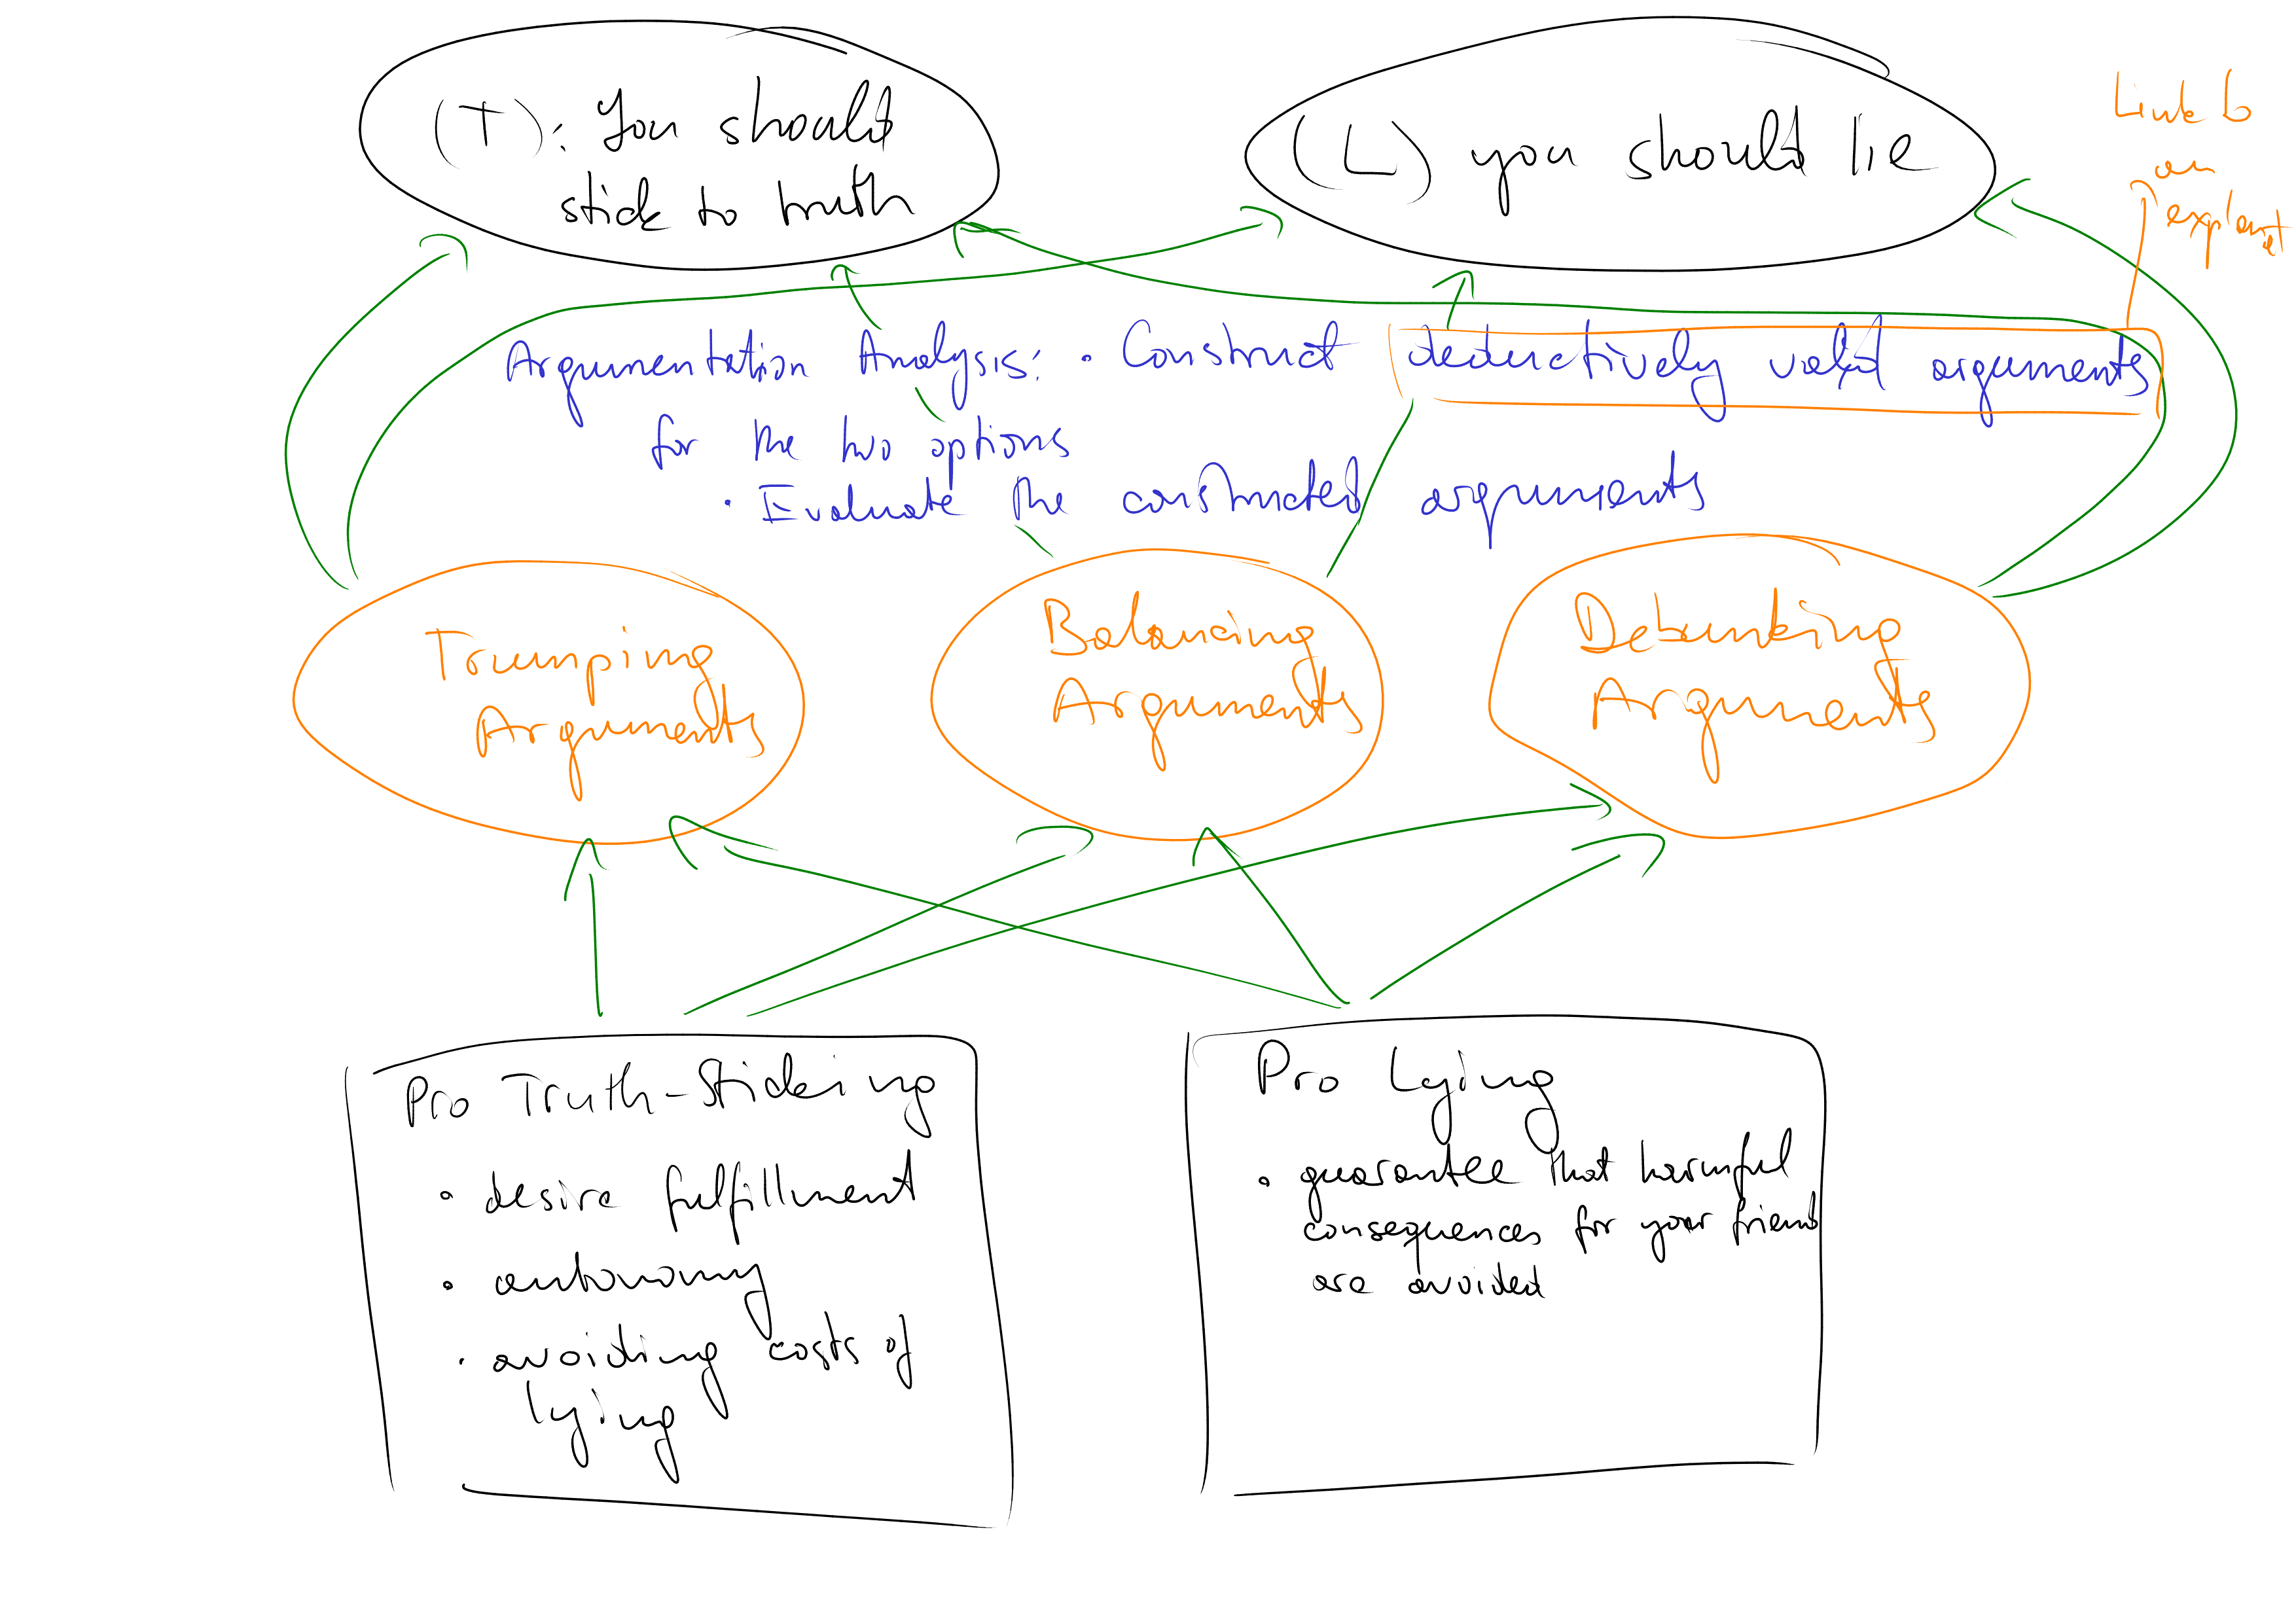 (T): You should
stick to truth
(L) you should lie
Link to
an
explanat
Argumentation Analysis: • Construct deductively valid arguments
for the two options
• Evaluate the constructed arguments
Trumping
Arguments
Balancing
Arguments
Debunking
Arguments
Pro Truth-Sticking
• desire fulfillment
• autonomy
• avoiding costs of
lying
Pro Lying
• guarantee that harmful
consequences for your friend
are avoided